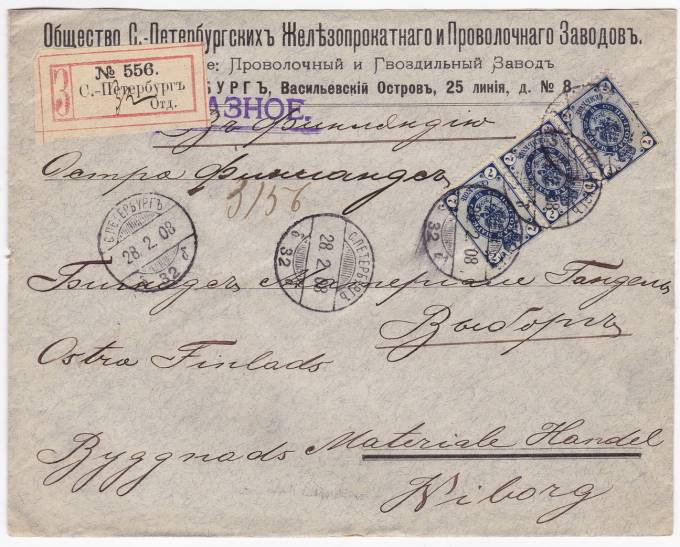 Общество С.-Петербургскихъ Желѣзопрокатнаго и Проволочнаго Заводовъ.
е: Проволочный и Гвоздильный Заводъ
БУРГЪ, Васильевскій Островъ, 25 линія, д. № 8
З
№ 556.
С.-Петербургъ
Отд.
АЗНОЕ.
Въ Финляндію
Остра Финландсъ
3/156
С.ПЕТЕРБУРГЪ
28.2.08
32 б
С.ПЕТЕРБУРГЪ
28.2.08
32 б
32 б
2.08
7
7
7
Матеріале Гандель
Выборгъ
Ostra Finlads
Byggnads Materiale Handel
Wiborg